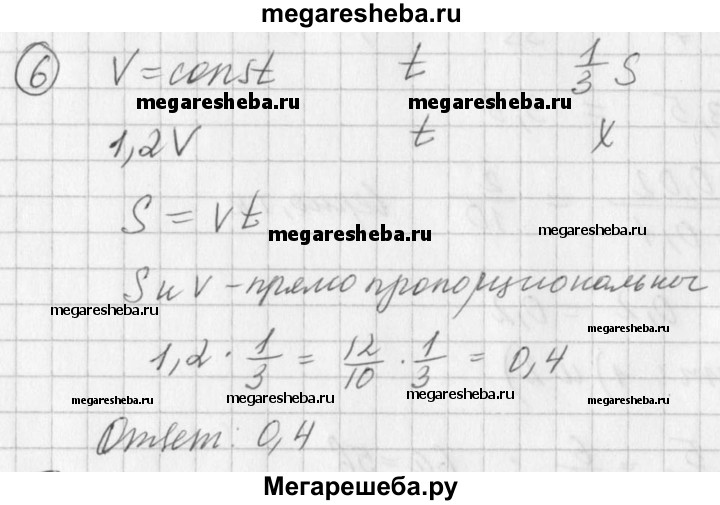 megaresheba.ru
6 V = const t 1/3 S
megaresheba.ru megaresheba.ru
1,2V t x
S = Vt
megaresheba.ru megaresheba.ru
S и V - прямо пропорциональны
megaresheba.ru megaresheba.ru
1,2 · 1/3 = 12/10 · 1/3 = 0,4
megaresheba.ru megaresheba.ru megaresheba.ru
Ответ: 0,4
Мегарешеба.ру